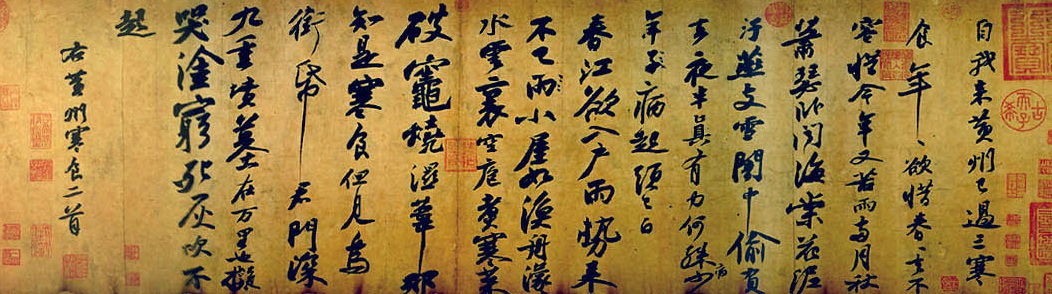 自我来黄州已過三寒
食年ヽ欲惜春ヽ去不
容惜今年又苦雨兩月秋
蕭瑟卧聞海棠花泥
汙燕支雪闇中偷負
去夜半真有力何殊病少
年子病起頭已白
春江欲入户雨勢来
不已雨小屋如漁舟濛ヽ
水雲裏空庖煮寒菜
破竈燒濕葦那
知是寒食但見烏
銜帋君門深
九重墳墓在万里也擬
哭塗窮死灰吹不
起
右黄州寒食二首